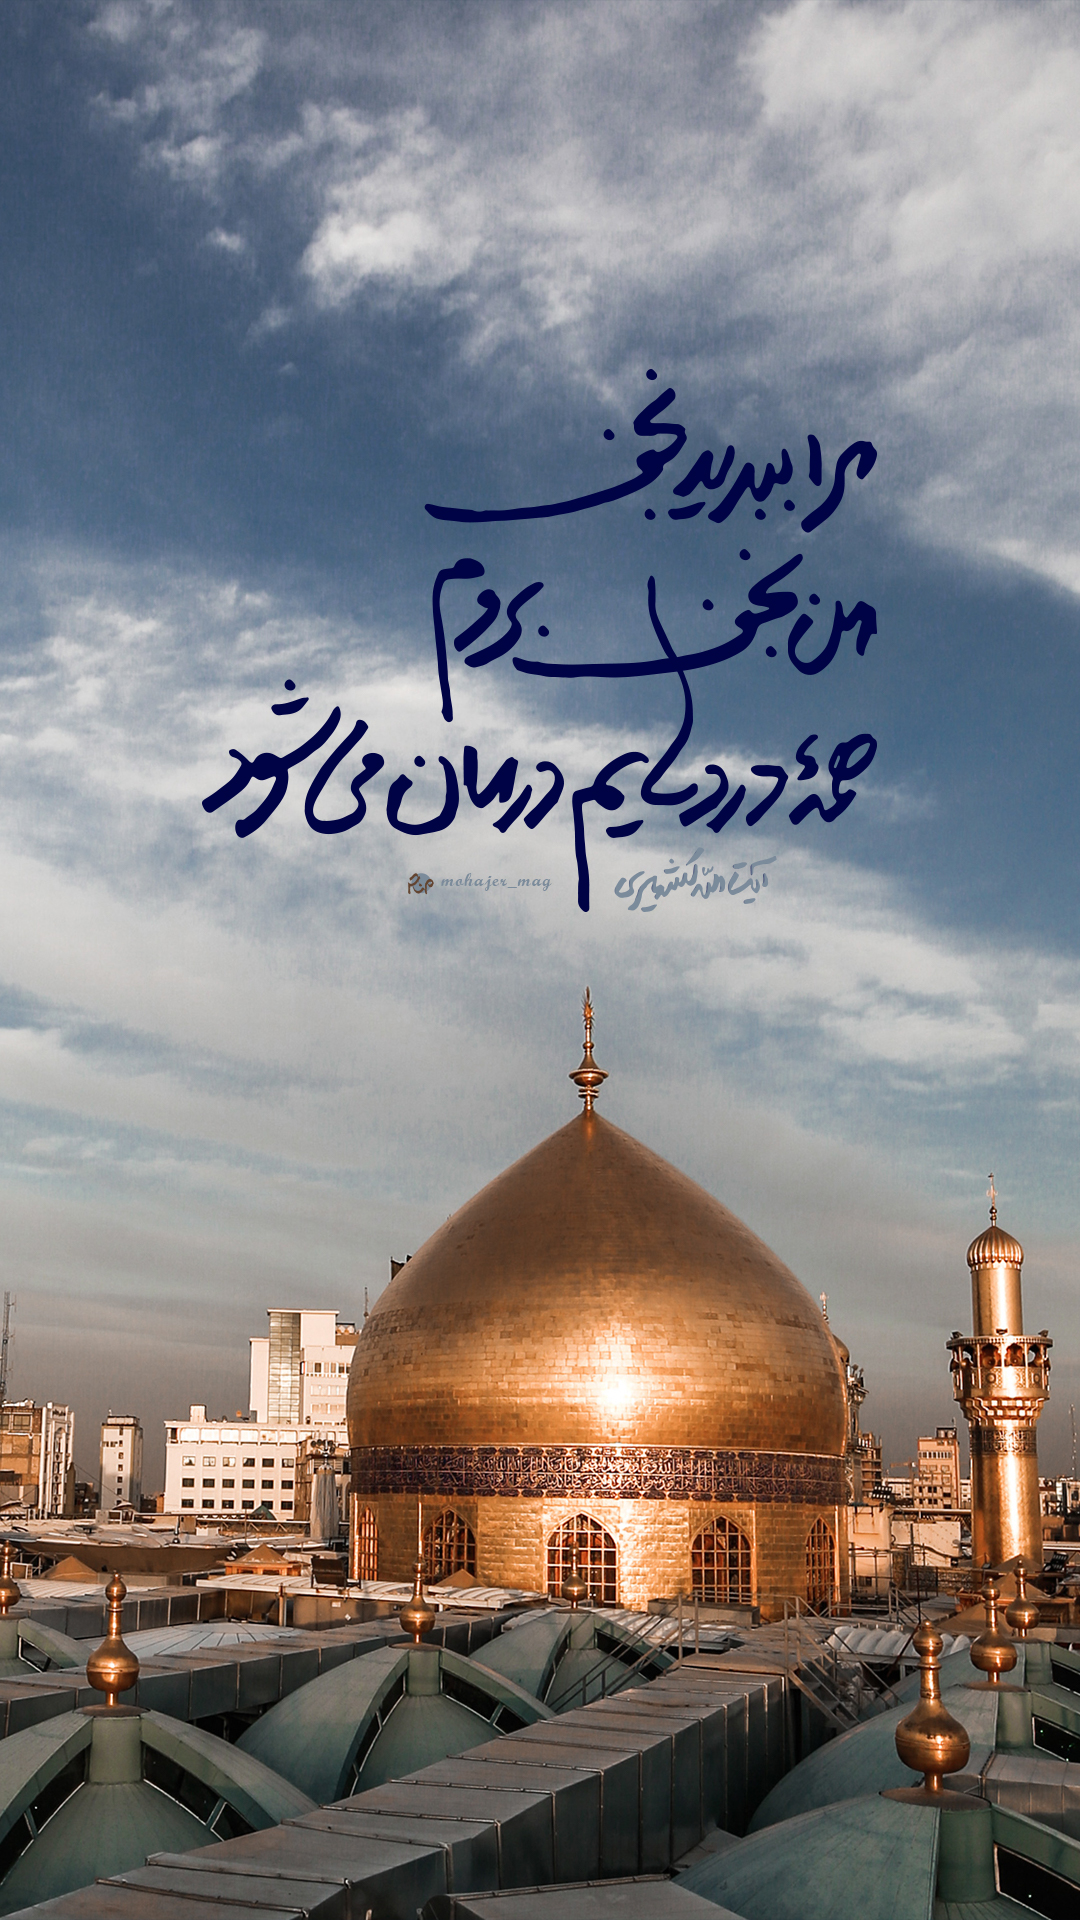 مرا ببرید نجف
من نجف بروم
همهٔ دردهایم درمان می‌شود
آیت‌الله کشمیری
mohajer_mag